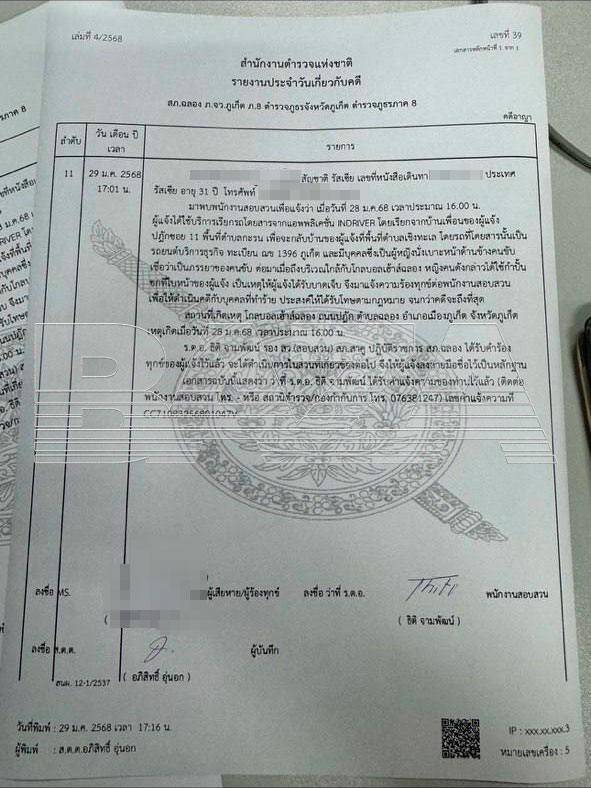 เล่มที่ 4/2568
เลขที่ 39
เอกสารหลักหน้าที่ 1 จาก 1
สำนักงานตำรวจแห่งชาติ
รายงานประจำวันเกี่ยวกับคดี
สภ.ฉลอง ภ.จว.ภูเก็ต ภ.8 ตำรวจภูธรจังหวัดภูเก็ต ตำรวจภูธรภาค 8
คดีอาญา
ลำดับ
วัน เดือน ปี
เวลา
รายการ
11
29 ม.ค. 2568
17:01 น.
สัญชาติ รัสเซีย เลขที่หนังสือเดินทาง ประเทศ
รัสเซีย อายุ 31 ปี โทรศัพท์
มาพบพนักงานสอบสวนเพื่อแจ้งว่า เมื่อวันที่ 28 ม.ค.68 เวลาประมาณ 16.00 น.
ผู้แจ้งได้ใช้บริการเรียกรถโดยสารจากแอพพลิเคชั่น INDRIVER โดยเรียกจากบ้านเพื่อนของผู้แจ้ง
ปฏักซอย 11 พื้นที่ตำบลกะรน เพื่อจะกลับบ้านของผู้แจ้งที่พื้นที่ตำบลเชิงทะเล โดยรถที่โดยสารนั้นเป็น
รถยนต์บริการธุรกิจ ทะเบียน ณข 1396 ภูเก็ต และมีบุคคลซึ่งเป็นผู้หญิงนั่งเบาะหน้าด้านข้างคนขับ
เชื่อว่าเป็นภรรยาของคนขับ ต่อมาเมื่อถึงบริเวณใกล้กับโกลบอลเฮ้าส์ฉลอง หญิงคนดังกล่าวได้ใช้กำปั้น
ชกที่ใบหน้าของผู้แจ้ง เป็นเหตุให้ผู้แจ้งได้รับบาดเจ็บ จึงมาแจ้งความร้องทุกข์ต่อพนักงานสอบสวน
เพื่อให้ดำเนินคดีกับบุคคลที่ทำร้าย ประสงค์ให้ได้รับโทษตามกฎหมาย จนกว่าคดีจะถึงที่สุด
สถานที่เกิดเหตุ โกลบอลเฮ้าส์ฉลอง ถนนปฏัก ตำบลฉลอง อำเภอเมืองภูเก็ต จังหวัดภูเก็ต
เหตุเกิดเมื่อวันที่ 28 ม.ค.68 เวลาประมาณ 16.00 น.
ร.ต.อ. ธิติ จามพัฒน์ รอง สว.(สอบสวน) สภ.สาคู ปฏิบัติราชการ สภ.ฉลอง ได้รับคำร้อง
ทุกข์ของผู้แจ้งไว้แล้ว จะได้ดำเนินการในส่วนที่เกี่ยวข้องต่อไป จึงให้ผู้แจ้งลงลายมือชื่อไว้เป็นหลักฐาน
เอกสารฉบับนี้แสดงว่า ว่าที่ ร.ต.อ. ธิติ จามพัฒน์ ได้รับคำแจ้งความของท่านไว้แล้ว (ติดต่อ
พนักงานสอบสวน โทร. - หรือ สถานีตำรวจ/กองกำกับการ โทร. 076381247) เลขคำแจ้งความที่
ลงชื่อ MS. ผู้เสียหาย/ผู้ร้องทุกข์
ลงชื่อ ว่าที่ ร.ต.อ. พนักงานสอบสวน
( ธิติ จามพัฒน์ )
ลงชื่อ ส.ต.ต. ผู้บันทึก
( อภิสิทธิ์ อุ่นอก )
สนผ. 12-1/2537
วันที่พิมพ์ : 29 ม.ค. 2568 เวลา 17:16 น.
ผู้พิมพ์ : ส.ต.ต.อภิสิทธิ์ อุ่นอก
IP : xxx.xx.xxx.3
หมายเลขเครื่อง : 5